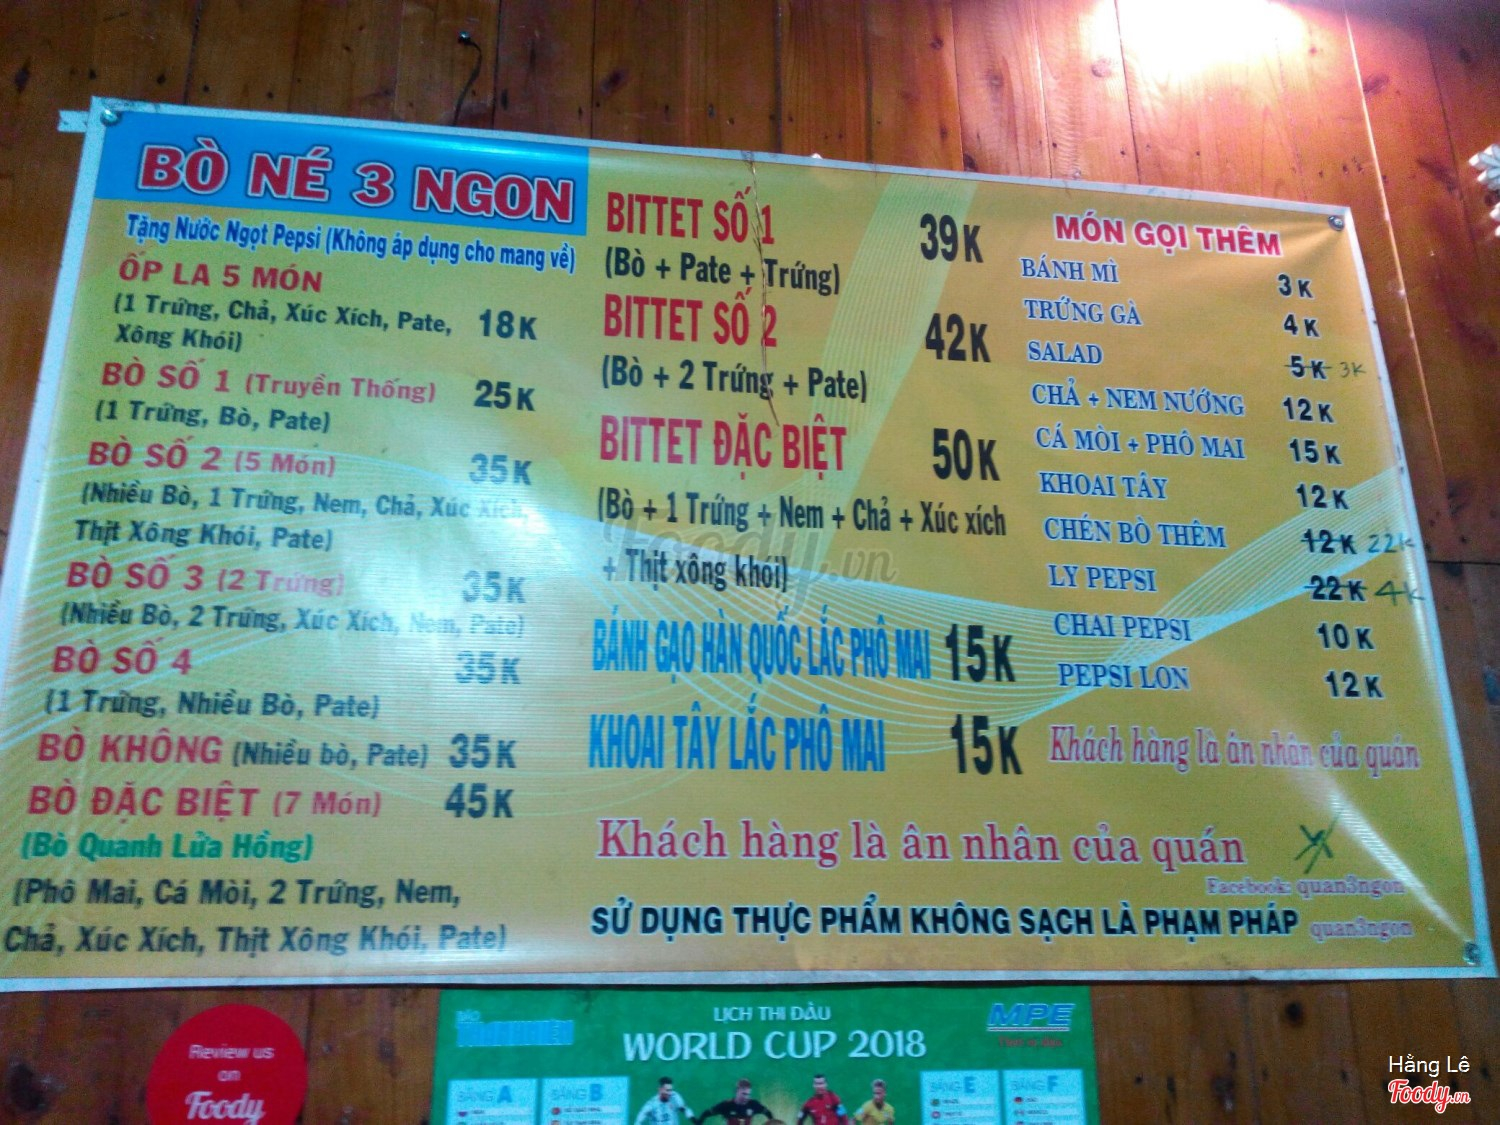 BÒ NÉ 3 NGON
Tặng Nước Ngọt Pepsi (Không áp dụng cho mang về)
ỐP LA 5 MÓN
(1 Trứng, Chả, Xúc Xích, Pate, 18K
Xông Khói)
BÒ SỐ 1 (Truyền Thống) 25K
(1 Trứng, Bò, Pate)
BÒ SỐ 2 (5 Món) 35K
(Nhiều Bò, 1 Trứng, Nem, Chả, Xúc Xích,
Thịt Xông Khói, Pate)
BÒ SỐ 3 (2 Trứng) 35K
(Nhiều Bò, 2 Trứng, Xúc Xích, Nem, Pate)
BÒ SỐ 4 35K
(1 Trứng, Nhiều Bò, Pate)
BÒ KHÔNG (Nhiều bò, Pate) 35K
BÒ ĐẶC BIỆT (7 Món) 45K
(Bò Quanh Lửa Hồng)
(Phô Mai, Cá Mòi, 2 Trứng, Nem,
Chả, Xúc Xích, Thịt Xông Khói, Pate)
BITTET SỐ 1 39K
(Bò + Pate + Trứng)
BITTET SỐ 2 42K
(Bò + 2 Trứng + Pate)
BITTET ĐẶC BIỆT 50K
(Bò + 1 Trứng + Nem + Chả + Xúc xích
+ Thịt xông khói)
BÁNH GẠO HÀN QUỐC LẮC PHÔ MAI 15K
KHOAI TÂY LẮC PHÔ MAI 15K
MÓN GỌI THÊM
BÁNH MÌ 3K
TRỨNG GÀ 4K
SALAD 5K 3K
CHẢ + NEM NƯỚNG 12K
CÁ MÒI + PHÔ MAI 15K
KHOAI TÂY 12K
CHÉN BÒ THÊM 12K 22K
LY PEPSI 22K 4K
CHAI PEPSI 10K
PEPSI LON 12K
Khách hàng là ân nhân của quán
Khách hàng là ân nhân của quán
Facebook: quan3ngon
SỬ DỤNG THỰC PHẨM KHÔNG SẠCH LÀ PHẠM PHÁP quan3ngon
Foody.vn
Review us
on
Foody
BÁO
LỊCH THI ĐẤU
WORLD CUP 2018
MPE
BẢNG A BẢNG B BẢNG E BẢNG F
Hằng Lê
Foody.vn